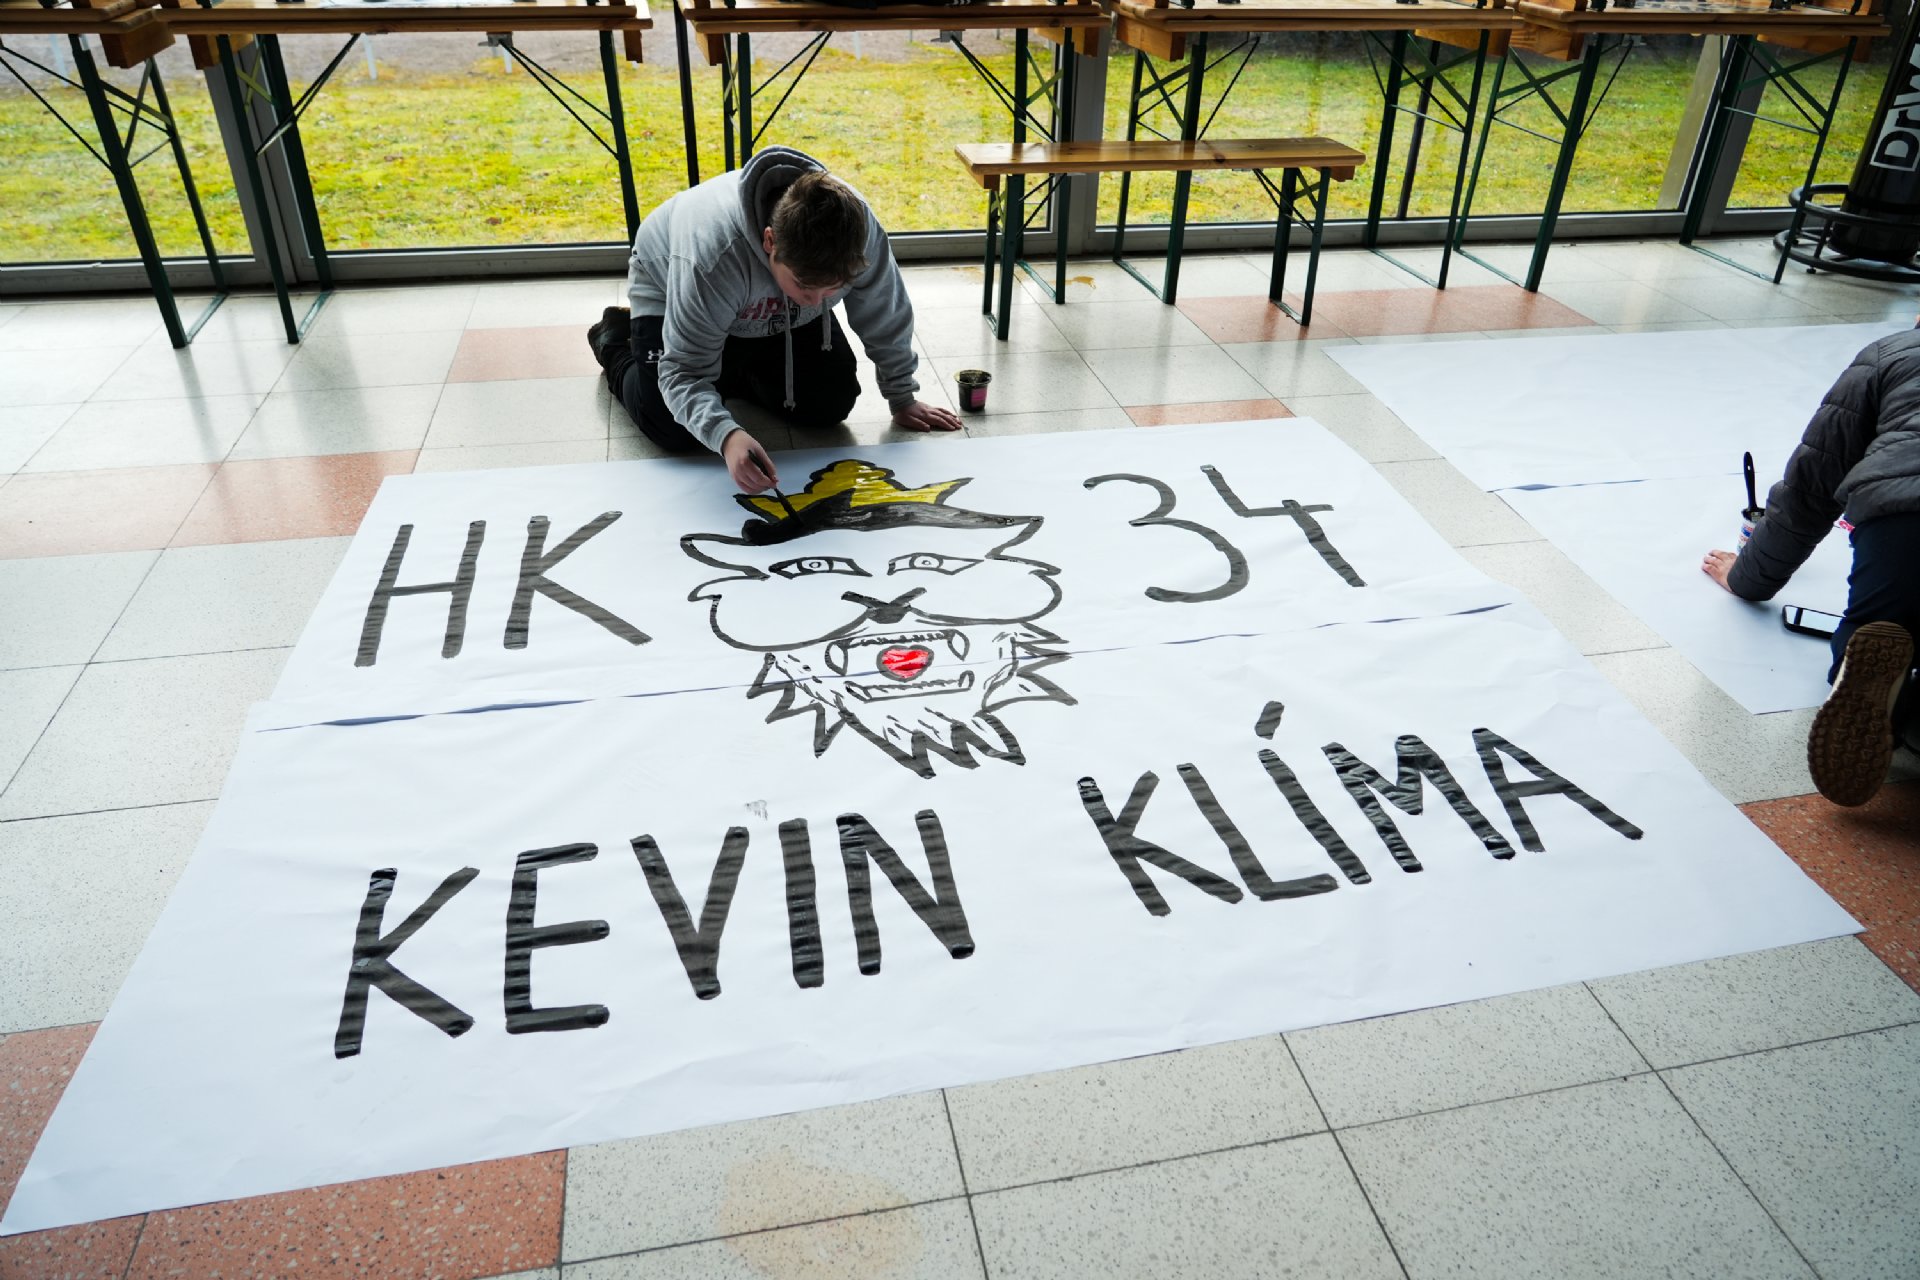 HK 34
KEVIN KLÍMA